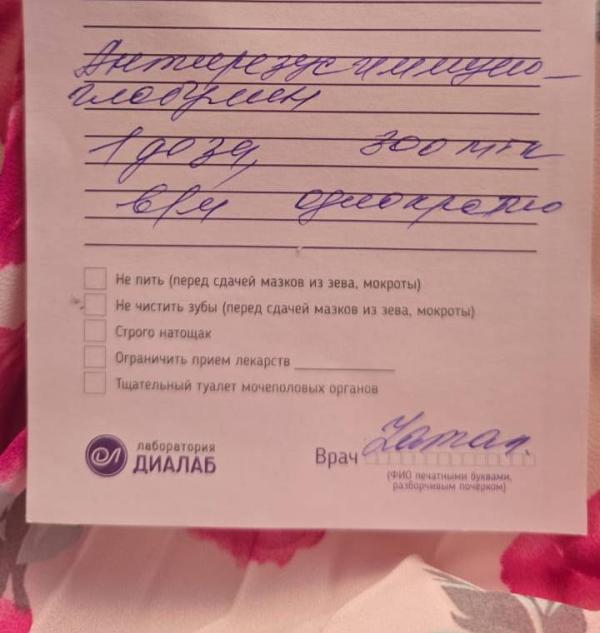 Антирезус иммуно-
глобулин
1 доза, 300 мгк
в/м однократно
Не пить (перед сдачей мазков из зева, мокроты)
Не чистить зубы (перед сдачей мазков из зева, мокроты)
Строго натощак
Ограничить прием лекарств
Тщательный туалет мочеполовых органов
лаборатория
ДИАЛАБ
Врач
(ФИО печатными буквами,
разборчивым почерком)